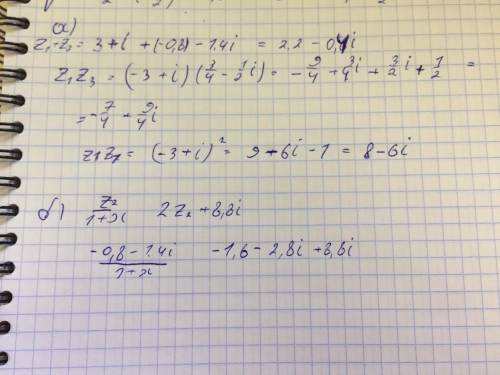 a)
z₁-z₂ = 3+i + (-0,8) - 1.4i = 2.2 - 0,4i
z₁z₃ = (-3+i)(3/4 - 1/2 i) = -9/4 + 3/4 i + 3/2 i + 1/2 =
= -7/4 + 9/4 i
= (-3+i)² = 9+6i-1 = 8-6i
б) z₂/(1+i) 2z₂+8,8i
(-0,8-1.4i)/(1+i) -1,6-2,8i+8,8i